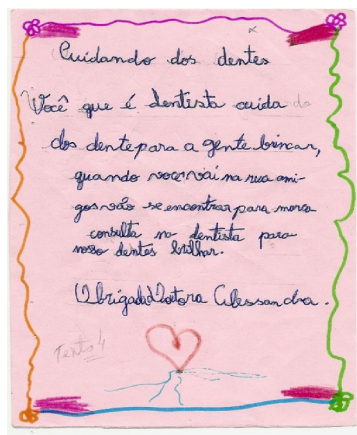 Cuidando dos dentes
Você que é dentista cuida
dos dente para a gente brincar,
quando você vai na rua ami-
gos vão se encontrar para marca
consulta no dentista para
nosso dentes brilhar.
Obrigada Dotora Alessandra.
Texto 4